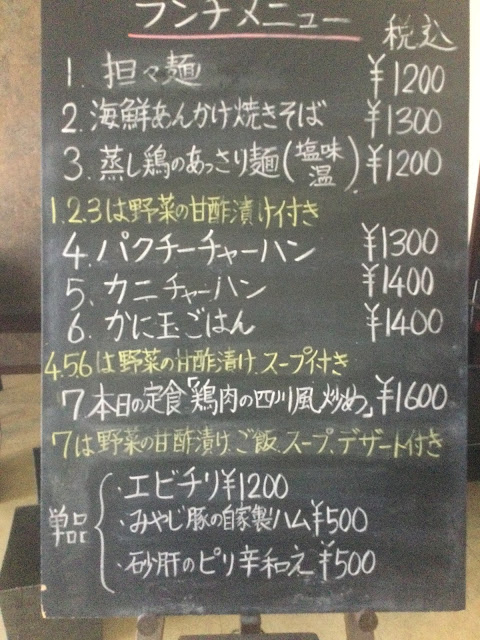 ランチメニュー
税込
1. 担々麺 ¥1200
2. 海鮮あんかけ焼きそば ¥1300
3. 蒸し鶏のあっさり麺(塩味 温) ¥1200
1.2.3は野菜の甘酢漬け付き
4. パクチーチャーハン ¥1300
5. カニチャーハン ¥1400
6. かに玉ごはん ¥1400
4.5 6は野菜の甘酢漬け、スープ付き
7 本日の定食「鶏肉の四川風炒め」¥1600
7は野菜の甘酢漬け、ご飯、スープ、デザート付き
単品
・エビチリ¥1200
・みやじ豚の自家製ハム¥500
・砂肝のピリ辛和え¥500